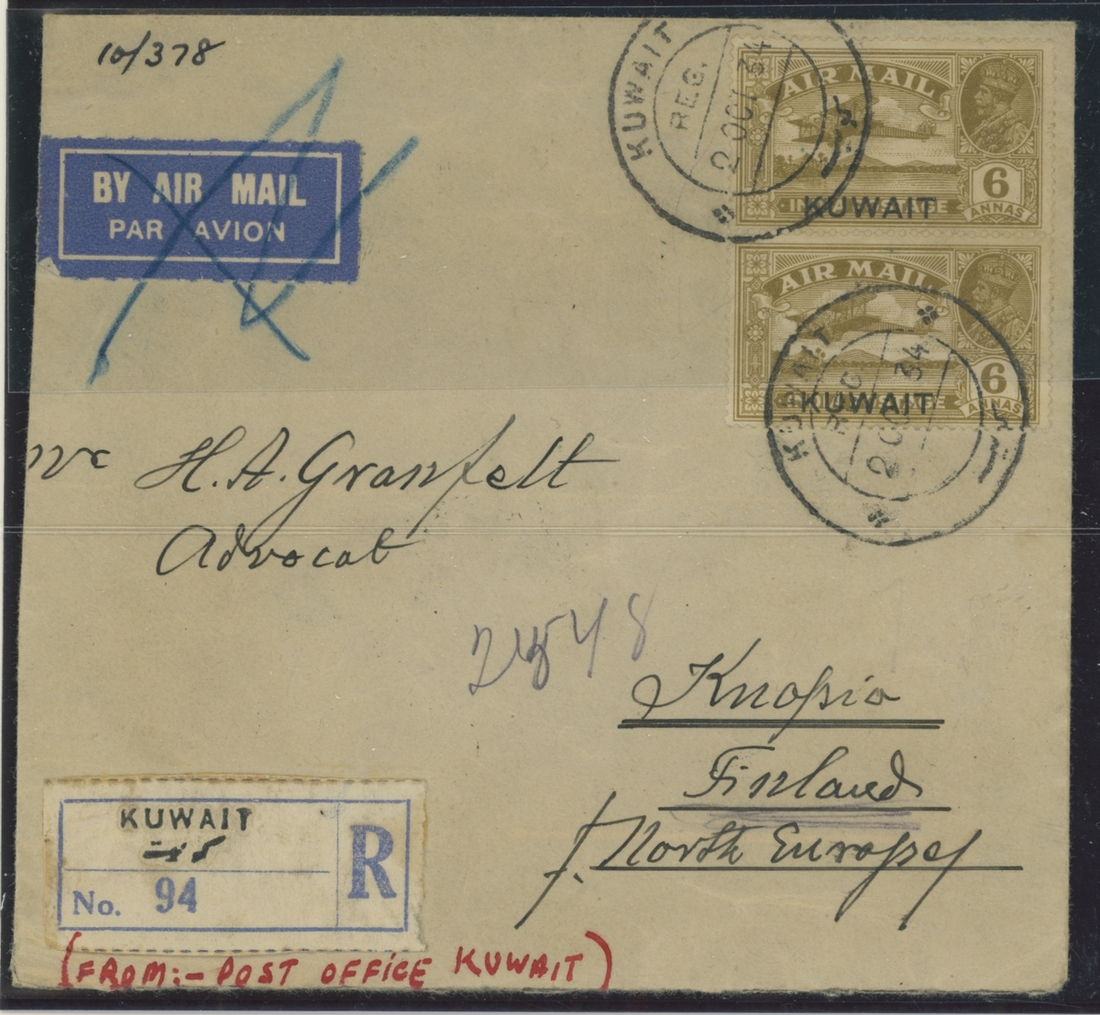 10/378
BY AIR MAIL
PAR AVION
KUWAIT
REG.
2 OCT 34
كويت
AIR MAIL
6
ANNAS
KUWAIT
AIR MAIL
6
ANNAS
KUWAIT
KUWAIT
REG
2 OCT 34
كويت
H. A. Granfelt
Advocat
Knopio
Finland
/. North Europe/
KUWAIT
كويت
No. 94
R
(FROM:- POST OFFICE KUWAIT)